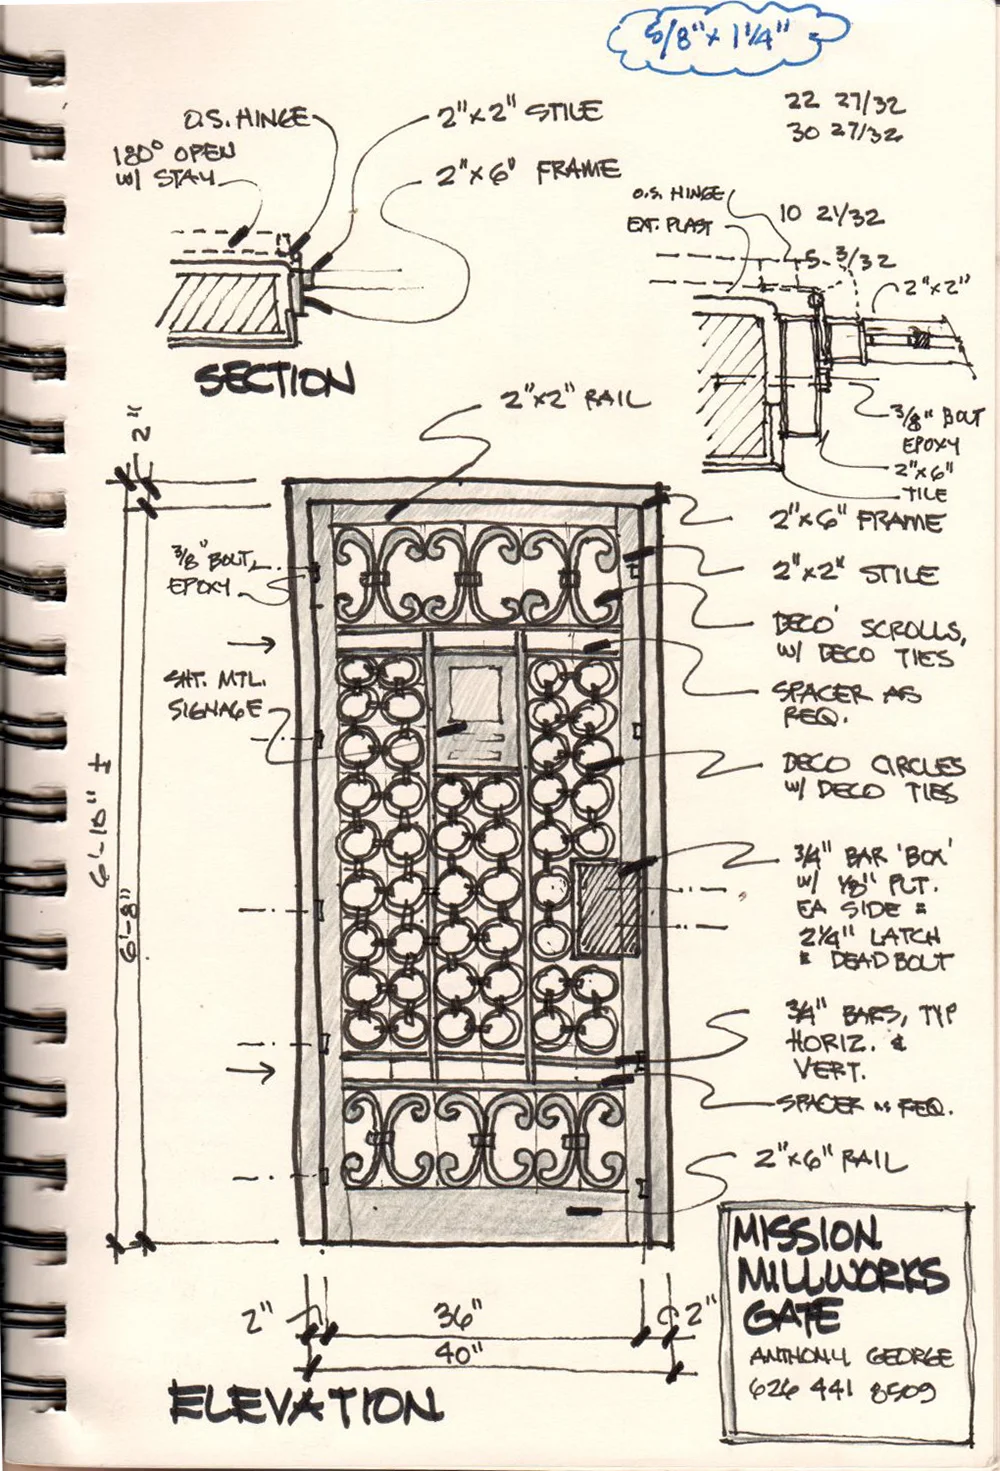 5/8" x 1 1/4"
22 27/32
30 27/32
O.S. HINGE
180° OPEN
W/ STAY
2"x2" STILE
2"x6" FRAME
SECTION
O.S. HINGE
EXT. PLAST
10 21/32
5 3/32
2"x2"
3/8" BOLT
EPOXY
2"x6"
TILE
2"x2" RAIL
2"
3/8" BOLT,
EPOXY
SHT. MTL.
SIGNAGE
6'-10" ±
6'-8"
2"x6" FRAME
2"x2" STILE
DECO' SCROLLS,
W/ DECO TIES
SPACER AS
REQ.
DECO CIRCLES
W/ DECO TIES
3/4" BAR 'BOX'
W/ 1/8" PLT.
EA SIDE =
2 1/4" LATCH
& DEADBOLT
3/4" BARS, TYP
HORIZ. &
VERT.
SPACER AS REQ.
2"x6" RAIL
2"
36"
2"
40"
ELEVATION
MISSION
MILLWORKS
GATE
ANTHONY GEORGE
626 441 8509